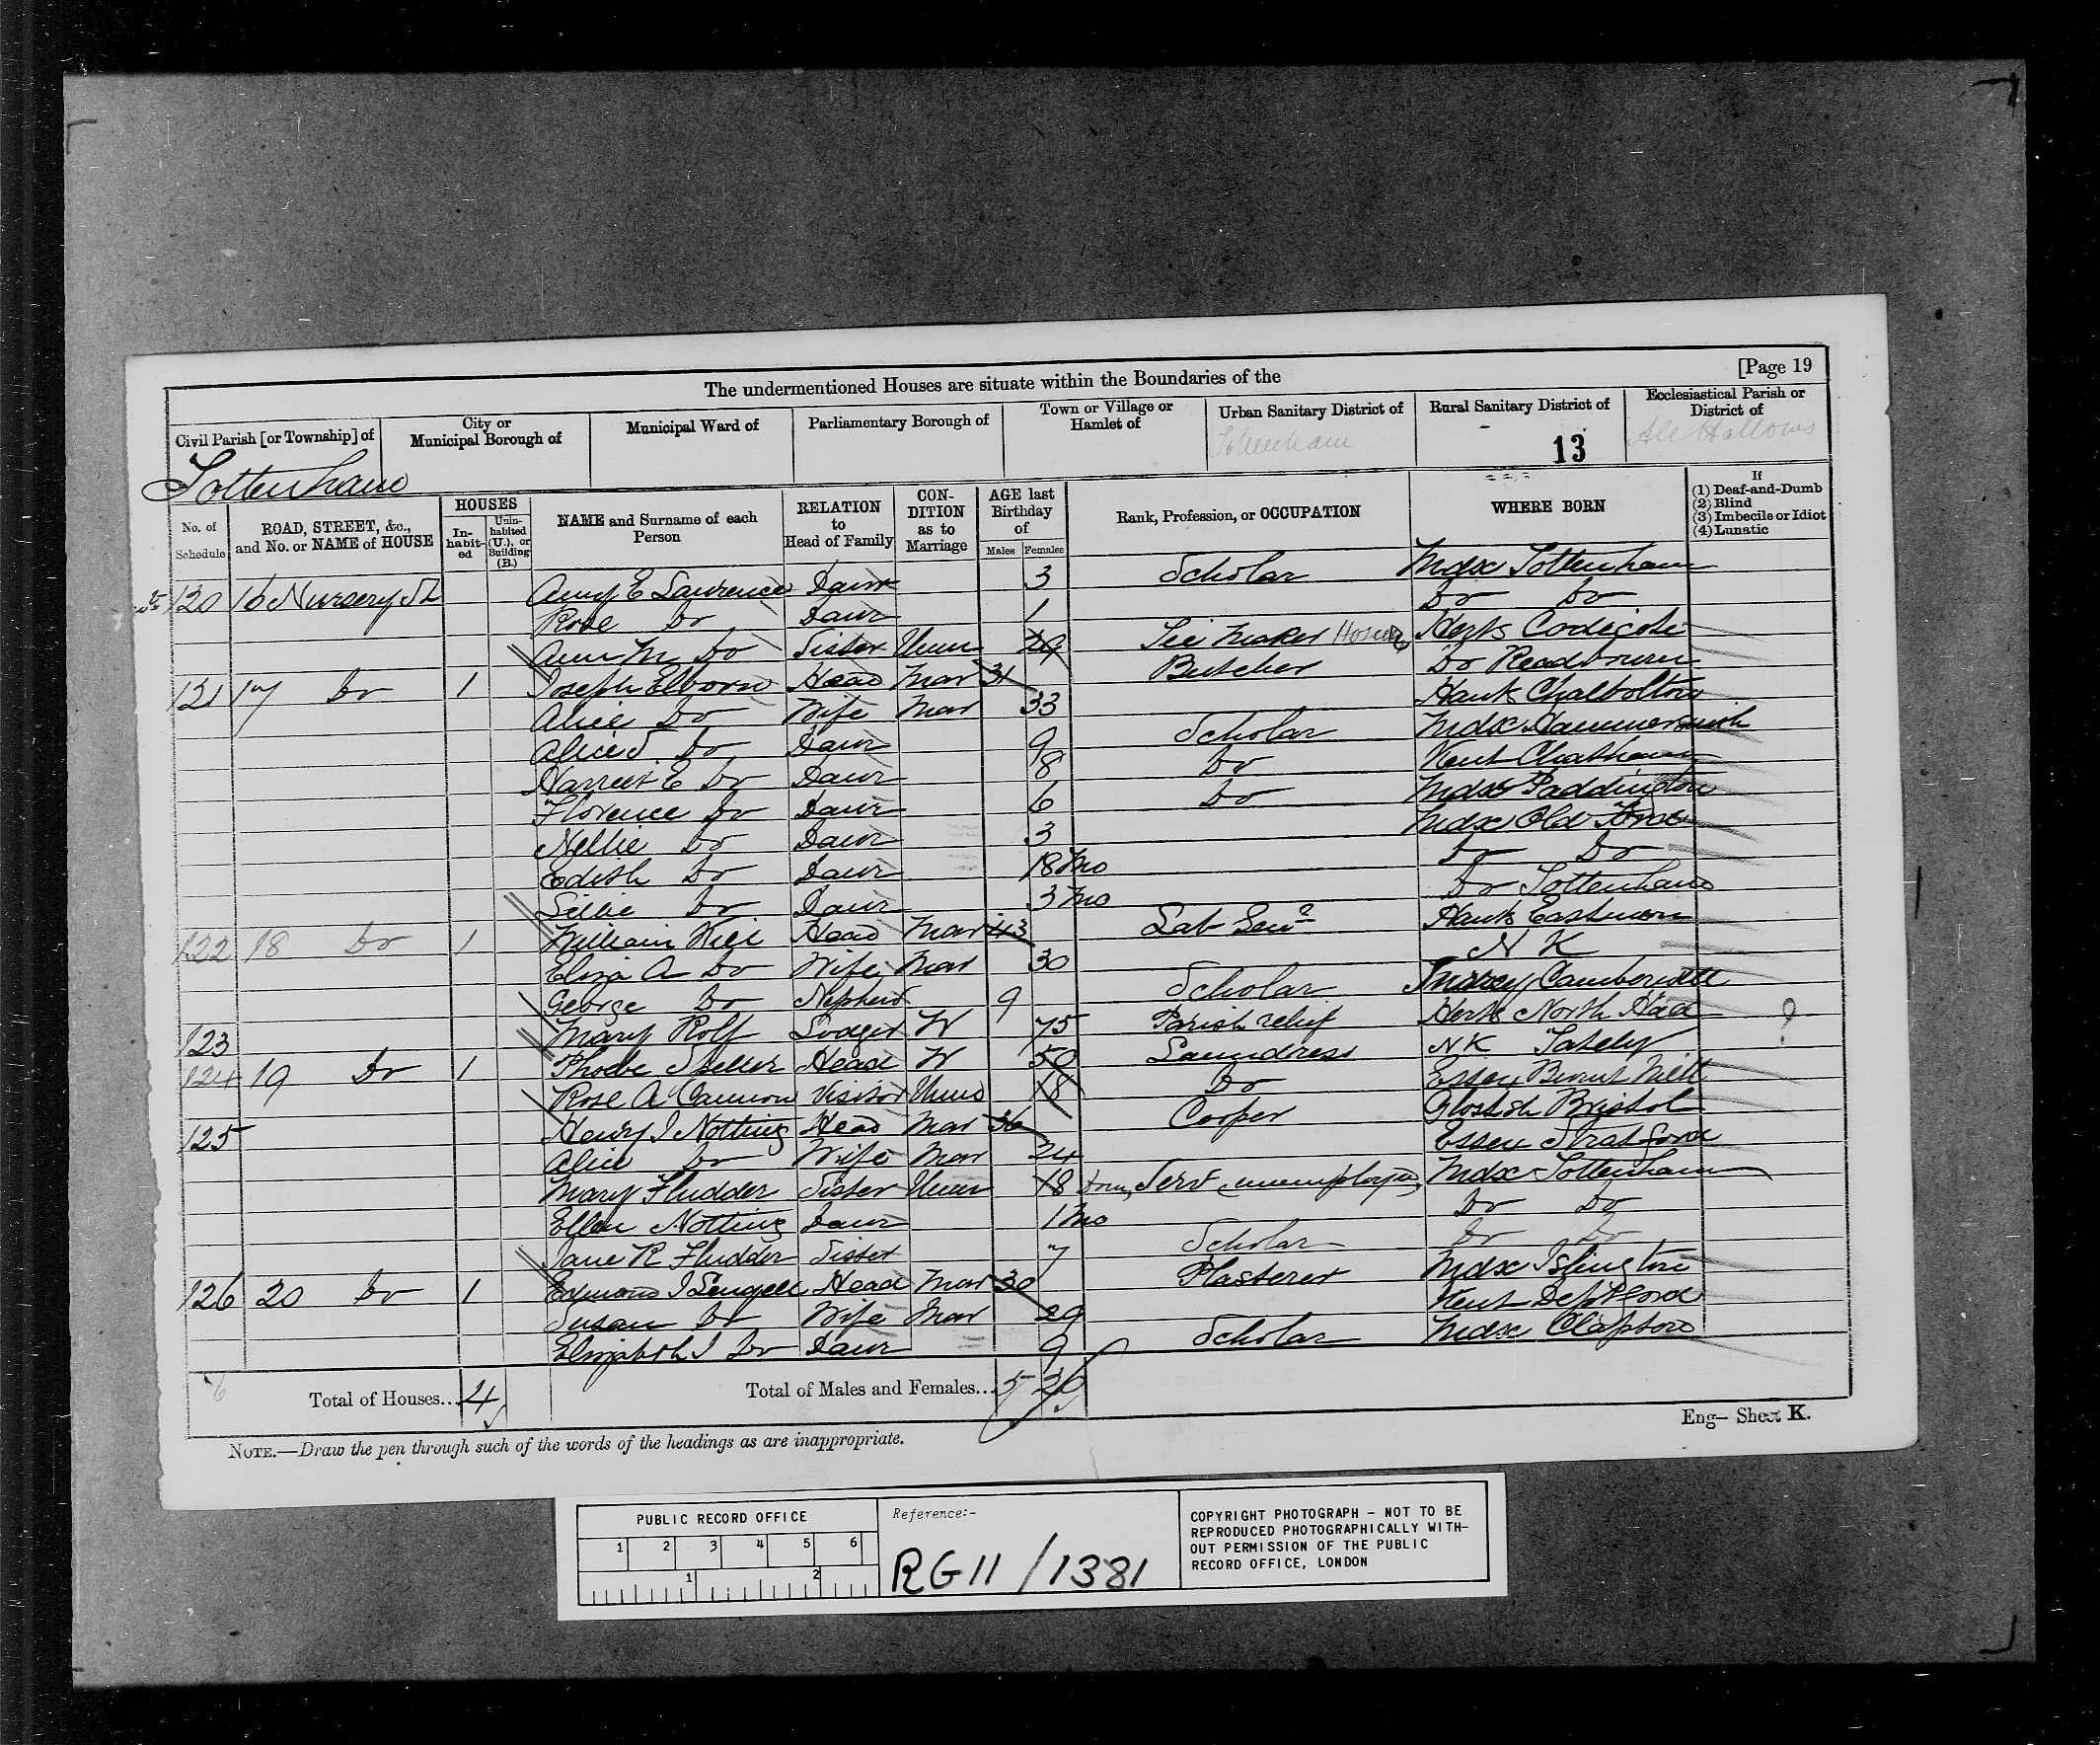 [Page 19
The undermentioned Houses are situate within the Boundaries of the
Civil Parish [or Township] of City or Municipal Borough of Municipal Ward of Parliamentary Borough of Town or Village or Hamlet of Urban Sanitary District of Rural Sanitary District of Ecclesiastical Parish or District of
Tottenham Tottenham 13 All Hallows
No. of Schedule ROAD, STREET, &c., and No. or NAME of HOUSE HOUSES In-habit-ed Unin-habited (U.), or Building (B.) NAME and Surname of each Person RELATION to Head of Family CON-DITION as to Marriage AGE last Birthday of Males Females Rank, Profession, or OCCUPATION WHERE BORN If (1) Deaf-and-Dumb (2) Blind (3) Imbecile or Idiot (4) Lunatic
120 16 Nursery St Amy E Lawrence Daur 3 Scholar Mdx Tottenham
Rose Do Daur 1 Do Do
Ann M Do Sister Unm 29 Herts Codicote
121 17 Do 1 Joseph Elborn Head Mar 31 Butcher Do Readbourn
Alice Do Wife Mar 33 Hants Chalbolton
Alice S Do Daur 9 Scholar Mdx Hammersmith
Harriet E Do Daur 8 Do Kent Chatham
Florence Do Daur 6 Do Mdx Paddington
Nellie Do Daur 3 Mdx Old Ford
Edith Do Daur 18 Mo Do Do
Lillie Do Daur 3 Mo Do Tottenham
122 18 Do 1 William Hill Head Mar 43 Lab Genl Hants Eastmeon
Eliza A Do Wife Mar 30 N K
George Do Nephew 9 Scholar Surrey Camberwell
123 Mary Rolf Lodger W 75 Parish relief Herts North Had ?
124 19 Do 1 Phoebe Head W 50 Laundress NK Tately
Rose A Cannon Visitor Unm 18 Do Essex Burnt Mill
125 Henry J Notting Head Mar 36 Cooper Glostsh Bristol
Alice Do Wife Mar 24 Essex Stratford
Mary Fludder Sister Unm 18 Dom Serv unemployed Mdx Tottenham
Ellen Notting Daur 1 Mo Do Do
Jane R Fludder Sister 7 Scholar Do Do
126 20 Do 1 Edmond J Head Mar 30 Plasterer Mdx Islington
Susan Do Wife Mar 29 Kent Deptford
Elizabeth J Do Daur 9 Scholar Mdx Clapton
Total of Houses... 4 Total of Males and Females... 5 20
Eng— Sheet K.
NOTE.—Draw the pen through such of the words of the headings as are inappropriate.
PUBLIC RECORD OFFICE
1 2 3 4 5 6
1 2
Reference:-
RG 11 / 1381
COPYRIGHT PHOTOGRAPH - NOT TO BE
REPRODUCED PHOTOGRAPHICALLY WITH-
OUT PERMISSION OF THE PUBLIC
RECORD OFFICE, LONDON